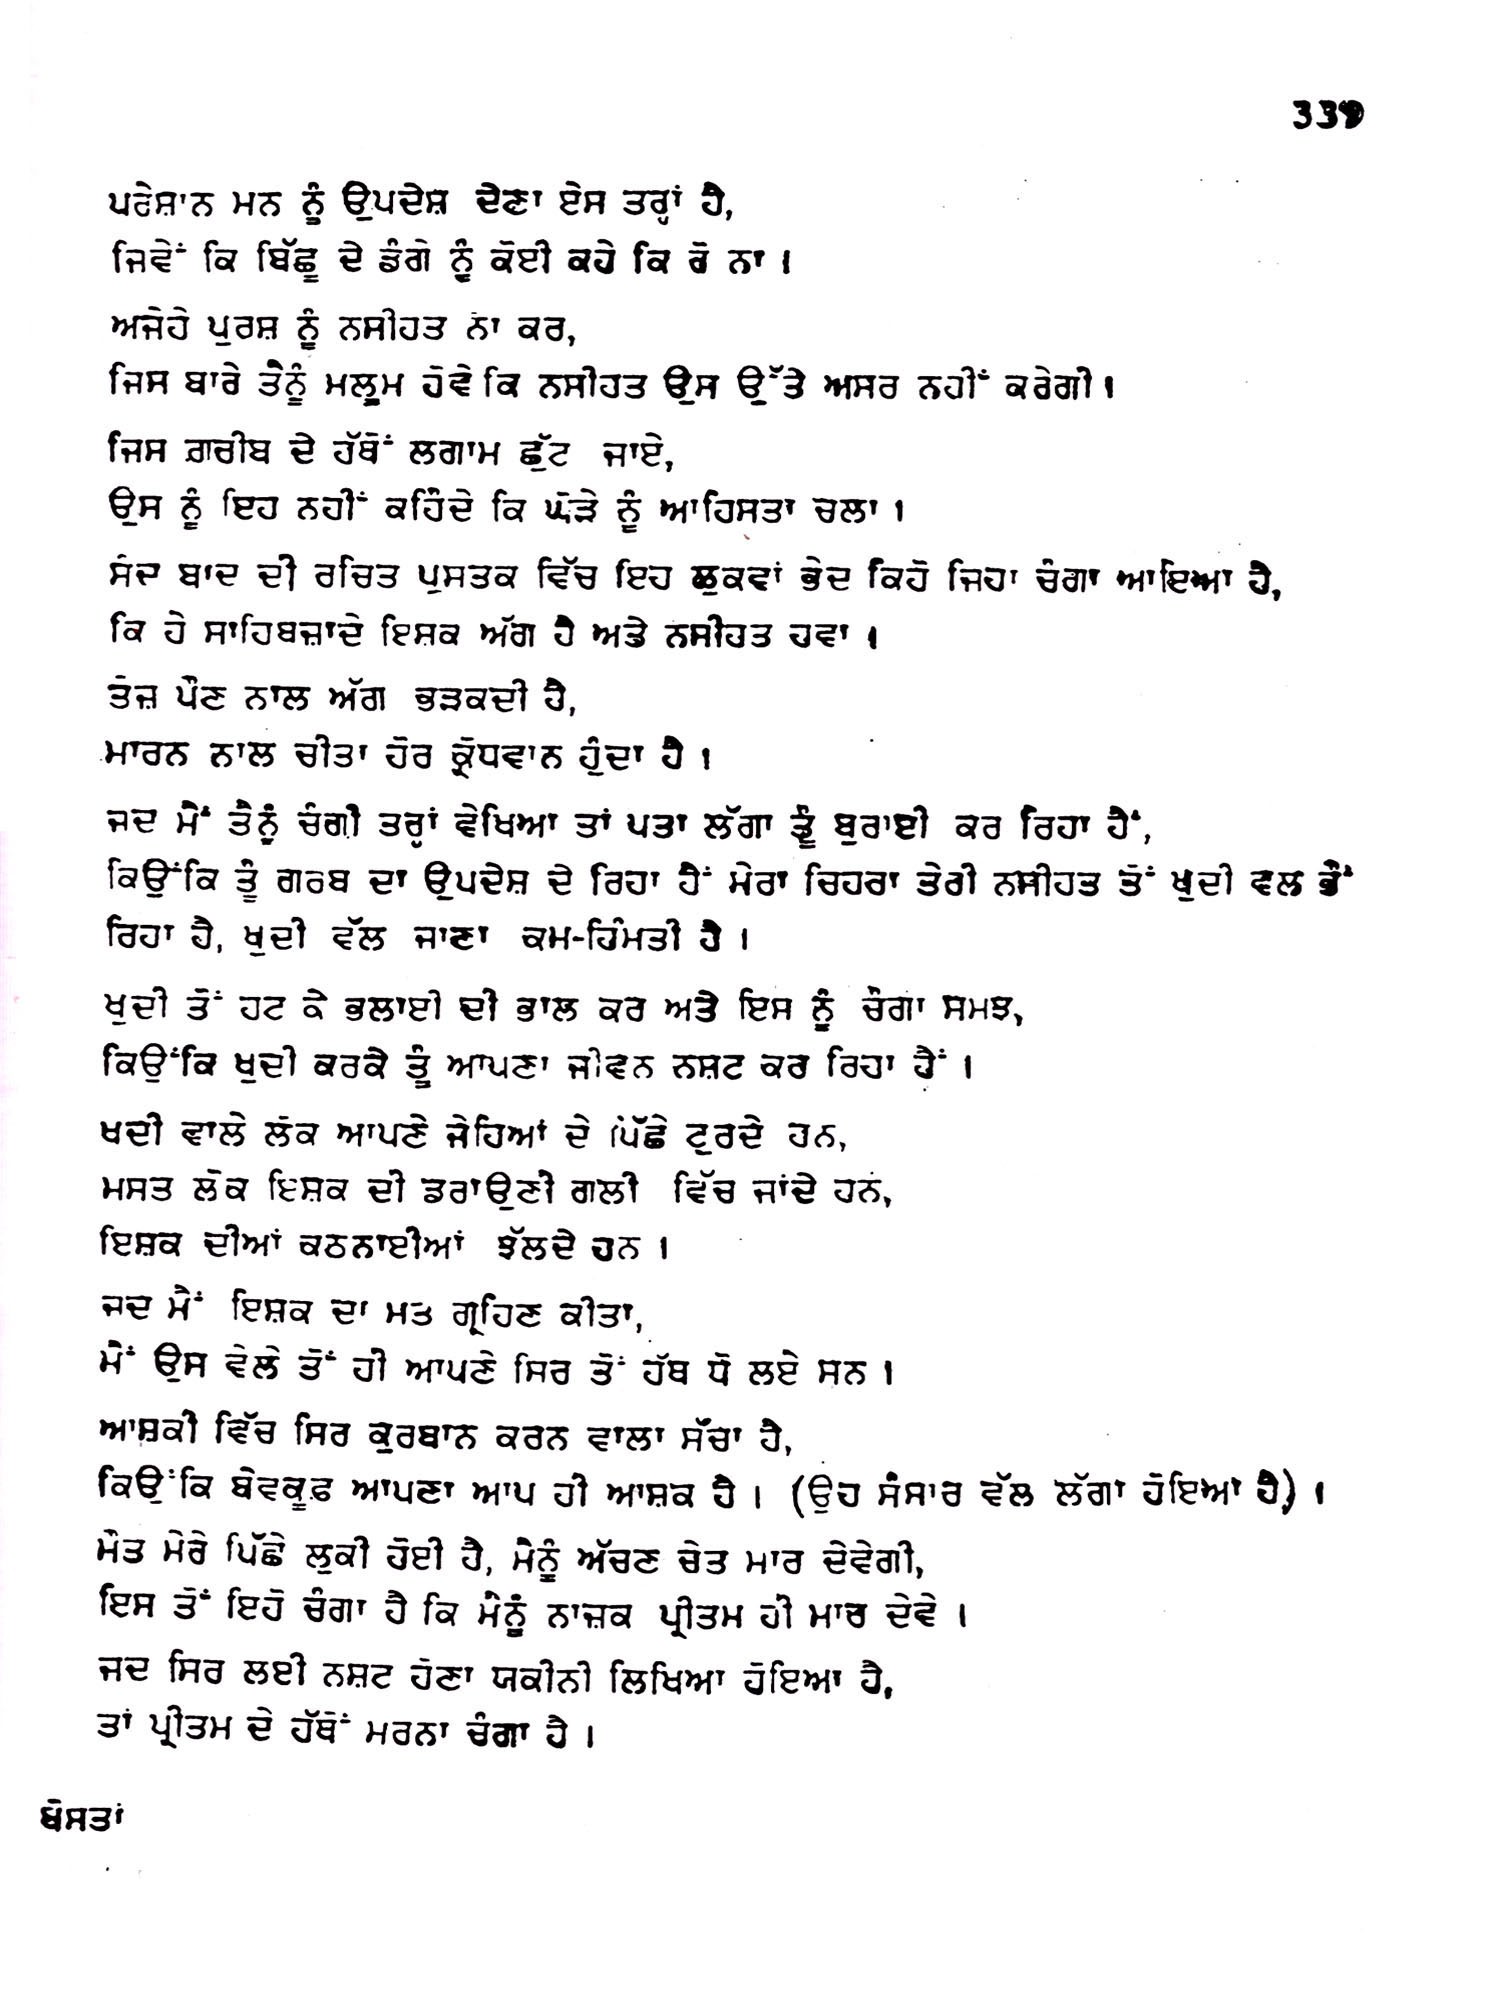 339
ਪਰੇਸ਼ਾਨ ਮਨ ਨੂੰ ਉਪਦੇਸ਼ ਦੇਣਾ ਏਸ ਤਰ੍ਹਾਂ ਹੈ,
ਜਿਵੇਂ ਕਿ ਬਿੱਛੂ ਦੇ ਡੰਗੇ ਨੂੰ ਕੋਈ ਕਹੇ ਕਿ ਰੋ ਨਾ ।
ਅਜੇਹੇ ਪੁਰਸ਼ ਨੂੰ ਨਸੀਹਤ ਨਾ ਕਰ,
ਜਿਸ ਬਾਰੇ ਤੈਨੂੰ ਮਲੂਮ ਹੋਵੇ ਕਿ ਨਸੀਹਤ ਉਸ ਉੱਤੇ ਅਸਰ ਨਹੀਂ ਕਰੇਗੀ ।
ਜਿਸ ਗ਼ਰੀਬ ਦੇ ਹੱਥੋਂ ਲਗਾਮ ਛੁੱਟ ਜਾਏ,
ਉਸ ਨੂੰ ਇਹ ਨਹੀਂ ਕਹਿੰਦੇ ਕਿ ਘੋੜੇ ਨੂੰ ਆਹਿਸਤਾ ਚਲਾ ।
ਸੰਦ ਬਾਦ ਦੀ ਰਚਿਤ ਪੁਸਤਕ ਵਿੱਚ ਇਹ ਲੁਕਵਾਂ ਭੇਦ ਕਿਹੋ ਜਿਹਾ ਚੰਗਾ ਆਇਆ ਹੈ,
ਕਿ ਹੇ ਸਾਹਿਬਜ਼ਾਦੇ ਇਸ਼ਕ ਅੱਗ ਹੈ ਅਤੇ ਨਸੀਹਤ ਹਵਾ ।
ਤੇਜ਼ ਪੌਣ ਨਾਲ ਅੱਗ ਭੜਕਦੀ ਹੈ,
ਮਾਰਨ ਨਾਲ ਚੀਤਾ ਹੋਰ ਕ੍ਰੋਧਵਾਨ ਹੁੰਦਾ ਹੈ ।
ਜਦ ਮੈਂ ਤੈਨੂੰ ਚੰਗੀ ਤਰ੍ਹਾਂ ਵੇਖਿਆ ਤਾਂ ਪਤਾ ਲੱਗਾ ਤੂੰ ਬੁਰਾਈ ਕਰ ਰਿਹਾ ਹੈਂ,
ਕਿਉਂਕਿ ਤੂੰ ਗਰਬ ਦਾ ਉਪਦੇਸ਼ ਦੇ ਰਿਹਾ ਹੈਂ ਮੇਰਾ ਚਿਹਰਾ ਤੇਰੀ ਨਸੀਹਤ ਤੋਂ ਖੁਦੀ ਵਲ ਭੌਂ
ਰਿਹਾ ਹੈ, ਖੁਦੀ ਵੱਲ ਜਾਣਾ ਕਮ-ਹਿੰਮਤੀ ਹੈ ।
ਖੁਦੀ ਤੋਂ ਹਟ ਕੇ ਭਲਾਈ ਦੀ ਭਾਲ ਕਰ ਅਤੇ ਇਸ ਨੂੰ ਚੰਗਾ ਸਮਝ,
ਕਿਉਂਕਿ ਖੁਦੀ ਕਰਕੇ ਤੂੰ ਆਪਣਾ ਜੀਵਨ ਨਸ਼ਟ ਕਰ ਰਿਹਾ ਹੈਂ ।
ਖਦੀ ਵਾਲੇ ਲੋਕ ਆਪਣੇ ਜੇਹਿਆਂ ਦੇ ਪਿੱਛੇ ਟੁਰਦੇ ਹਨ,
ਮਸਤ ਲੋਕ ਇਸ਼ਕ ਦੀ ਡਰਾਉਣੀ ਗਲੀ ਵਿੱਚ ਜਾਂਦੇ ਹਨ,
ਇਸ਼ਕ ਦੀਆਂ ਕਠਨਾਈਆਂ ਝੱਲਦੇ ਹਨ ।
ਜਦ ਮੈਂ ਇਸ਼ਕ ਦਾ ਮਤ ਗ੍ਰਹਿਣ ਕੀਤਾ,
ਮੈਂ ਉਸ ਵੇਲੇ ਤੋਂ ਹੀ ਆਪਣੇ ਸਿਰ ਤੋਂ ਹੱਥ ਧੋ ਲਏ ਸਨ ।
ਆਸ਼ਕੀ ਵਿੱਚ ਸਿਰ ਕੁਰਬਾਨ ਕਰਨ ਵਾਲਾ ਸੱਚਾ ਹੈ,
ਕਿਉਂਕਿ ਬੇਵਕੂਫ਼ ਆਪਣਾ ਆਪ ਹੀ ਆਸ਼ਕ ਹੈ । (ਉਹ ਸੰਸਾਰ ਵੱਲ ਲੱਗਾ ਹੋਇਆ ਹੈ) ।
ਮੌਤ ਮੇਰੇ ਪਿੱਛੇ ਲੁਕੀ ਹੋਈ ਹੈ, ਮੈਨੂੰ ਅੱਚਣ ਚੇਤ ਮਾਰ ਦੇਵੇਗੀ,
ਇਸ ਤੋਂ ਇਹੋ ਚੰਗਾ ਹੈ ਕਿ ਮੈਨੂੰ ਨਾਜ਼ਕ ਪ੍ਰੀਤਮ ਹੀ ਮਾਰ ਦੇਵੇ ।
ਜਦ ਸਿਰ ਲਈ ਨਸ਼ਟ ਹੋਣਾ ਯਕੀਨੀ ਲਿਖਿਆ ਹੋਇਆ ਹੈ,
ਤਾਂ ਪ੍ਰੀਤਮ ਦੇ ਹੱਥੋਂ ਮਰਨਾ ਚੰਗਾ ਹੈ ।
ਬੋਸਤਾਂ